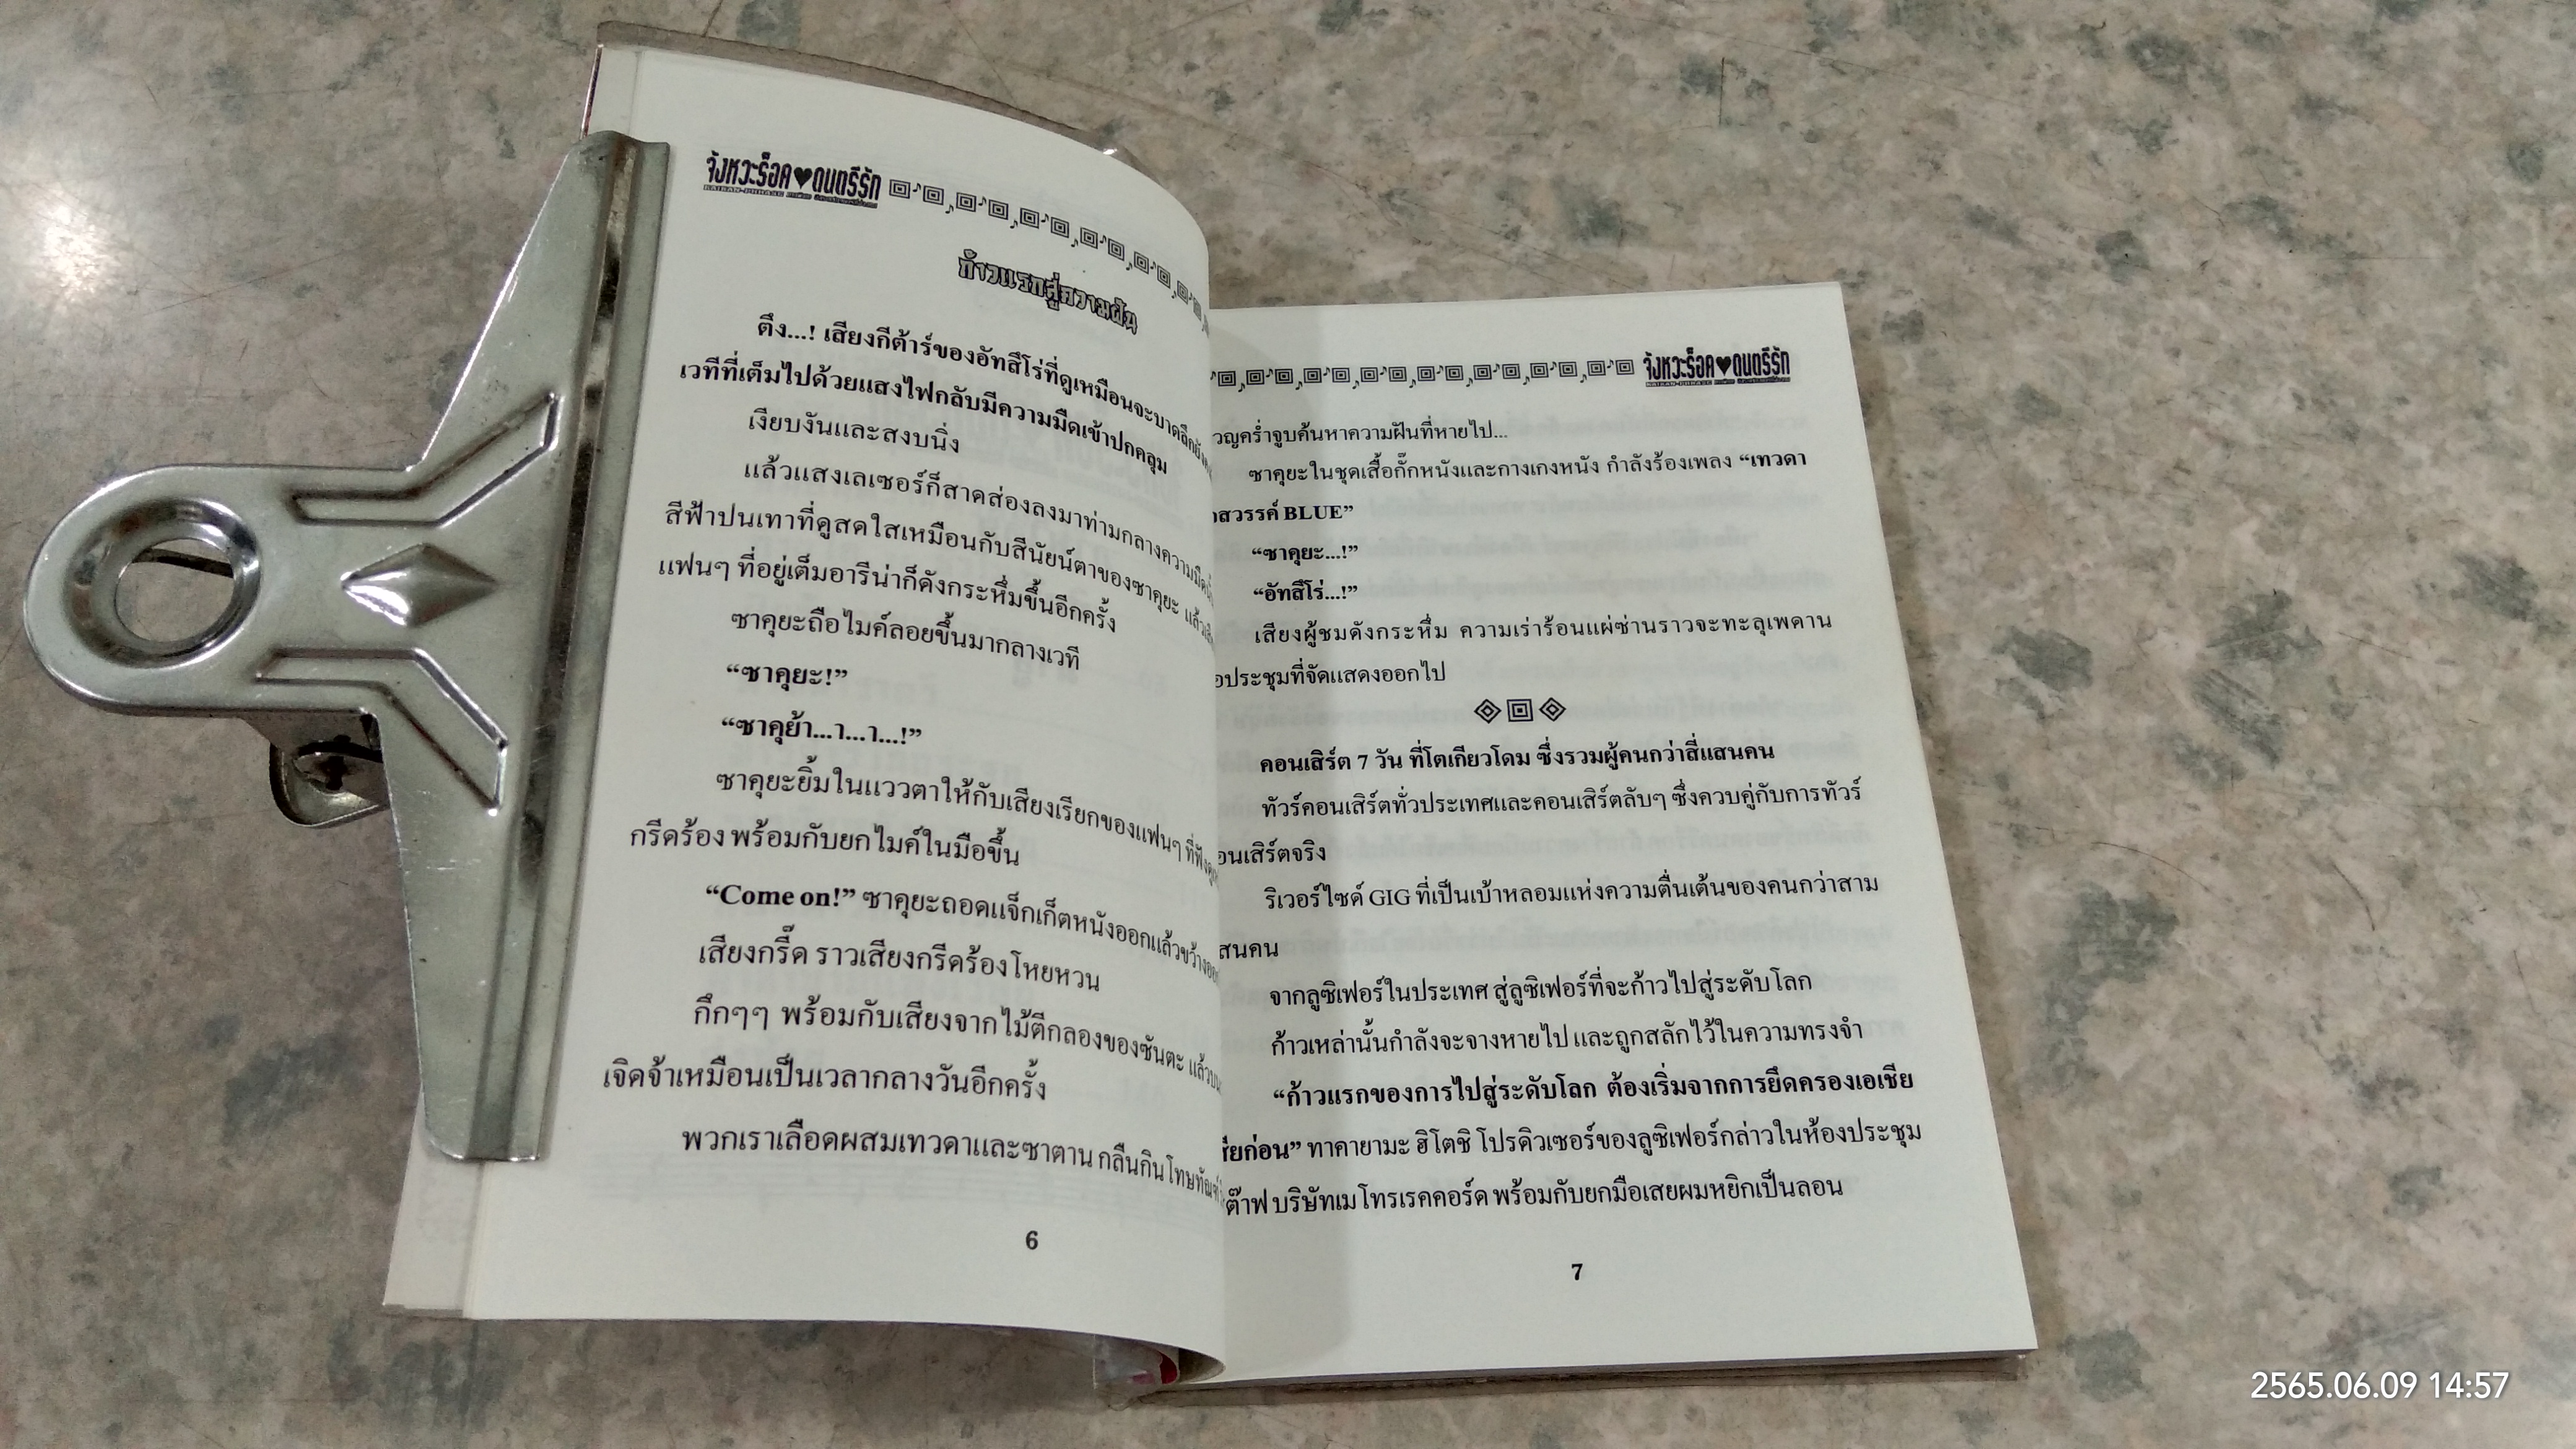 จังหวะร็อค♥ดนตรีรัก
KAIKAN-PHRASE
ก้าวแรกสู่ความฝัน
ตึง...! เสียงกีต้าร์ของอัทสึโร่ที่ดูเหมือนจะบาดลึกยัง
เวทีที่เต็มไปด้วยแสงไฟกลับมีความมืดเข้าปกคลุม
เงียบงันและสงบนิ่ง
แล้วแสงเลเซอร์ก็สาดส่องลงมาท่ามกลางความมืด
สีฟ้าปนเทาที่ดูสดใสเหมือนกับสีนัยน์ตาของซาคุยะ แล้ว
แฟนๆ ที่อยู่เต็มอารีน่าก็ดังกระหึ่มขึ้นอีกครั้ง
ซาคุยะถือไมค์ลอยขึ้นมากลางเวที
“ซาคุยะ!”
“ซาคุย้า...า...า...!”
ซาคุยะยิ้มในแววตาให้กับเสียงเรียกของแฟนๆ ที่
กรีดร้อง พร้อมกับยกไมค์ในมือขึ้น
“Come on!” ซาคุยะถอดแจ็กเก็ตหนังออกแล้วขว้าง
เสียงกรี๊ด ราวเสียงกรีดร้องโหยหวน
กึกๆๆ พร้อมกับเสียงจากไม้ตีกลองของซันตะ แล้ว
เจิดจ้าเหมือนเป็นเวลากลางวันอีกครั้ง
พวกเราเลือดผสมเทวดาและซาตาน กลืนกินโทษทัณฑ์
6
จังหวะร็อค♥ดนตรีรัก
KAIKAN-PHRASE
วญคร่ำจูบค้นหาความฝันที่หายไป...
ซาคุยะในชุดเสื้อกั๊กหนังและกางเกงหนัง กำลังร้องเพลง “เทวดา
สวรรค์ BLUE”
“ซาคุยะ...!”
“อัทสึโร่...!”
เสียงผู้ชมดังกระหึ่ม ความเร่าร้อนแผ่ซ่านราวจะทะลุเพดาน
อประชุมที่จัดแสดงออกไป
คอนเสิร์ต 7 วัน ที่โตเกียวโดม ซึ่งรวมผู้คนกว่าสี่แสนคน
ทัวร์คอนเสิร์ตทั่วประเทศและคอนเสิร์ตลับๆ ซึ่งควบคู่กับการทัวร์
อนเสิร์ตจริง
ริเวอร์ไซด์ GIG ที่เป็นเบ้าหลอมแห่งความตื่นเต้นของคนกว่าสาม
สนคน
จากลูซิเฟอร์ในประเทศ สู่ลูซิเฟอร์ที่จะก้าวไปสู่ระดับโลก
ก้าวเหล่านั้นกำลังจะจางหายไป และถูกสลักไว้ในความทรงจำ
“ก้าวแรกของการไปสู่ระดับโลก ต้องเริ่มจากการยึดครองเอเชีย
ก่อน” ทาคายามะ ฮิโตชิ โปรดิวเซอร์ของลูซิเฟอร์กล่าวในห้องประชุม
ต๊าฟ บริษัทเมโทรเรคคอร์ด พร้อมกับยกมือเสยผมหยิกเป็นลอน
7
2565.06.09 14:57